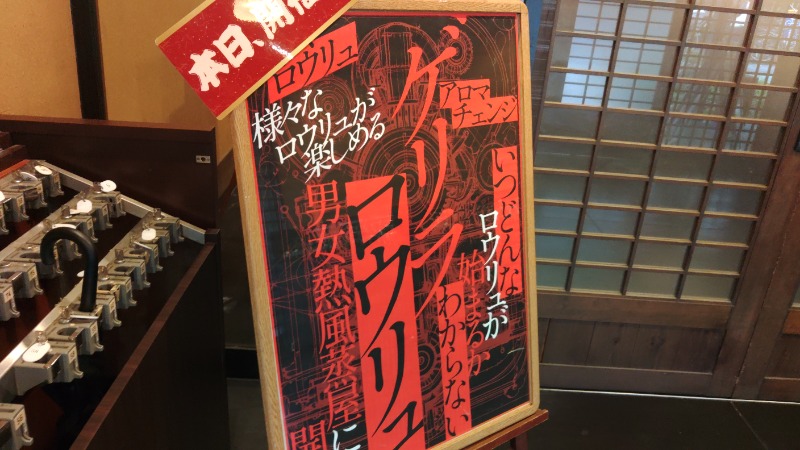 本日、開催
ゲリラ
ロウリュ
ロウリュ
アロマ
チェンジ
様々な
ロウリュが
楽しめる
いつどんな
ロウリュが
始まるか
わからない
男女熱風蒸屋に